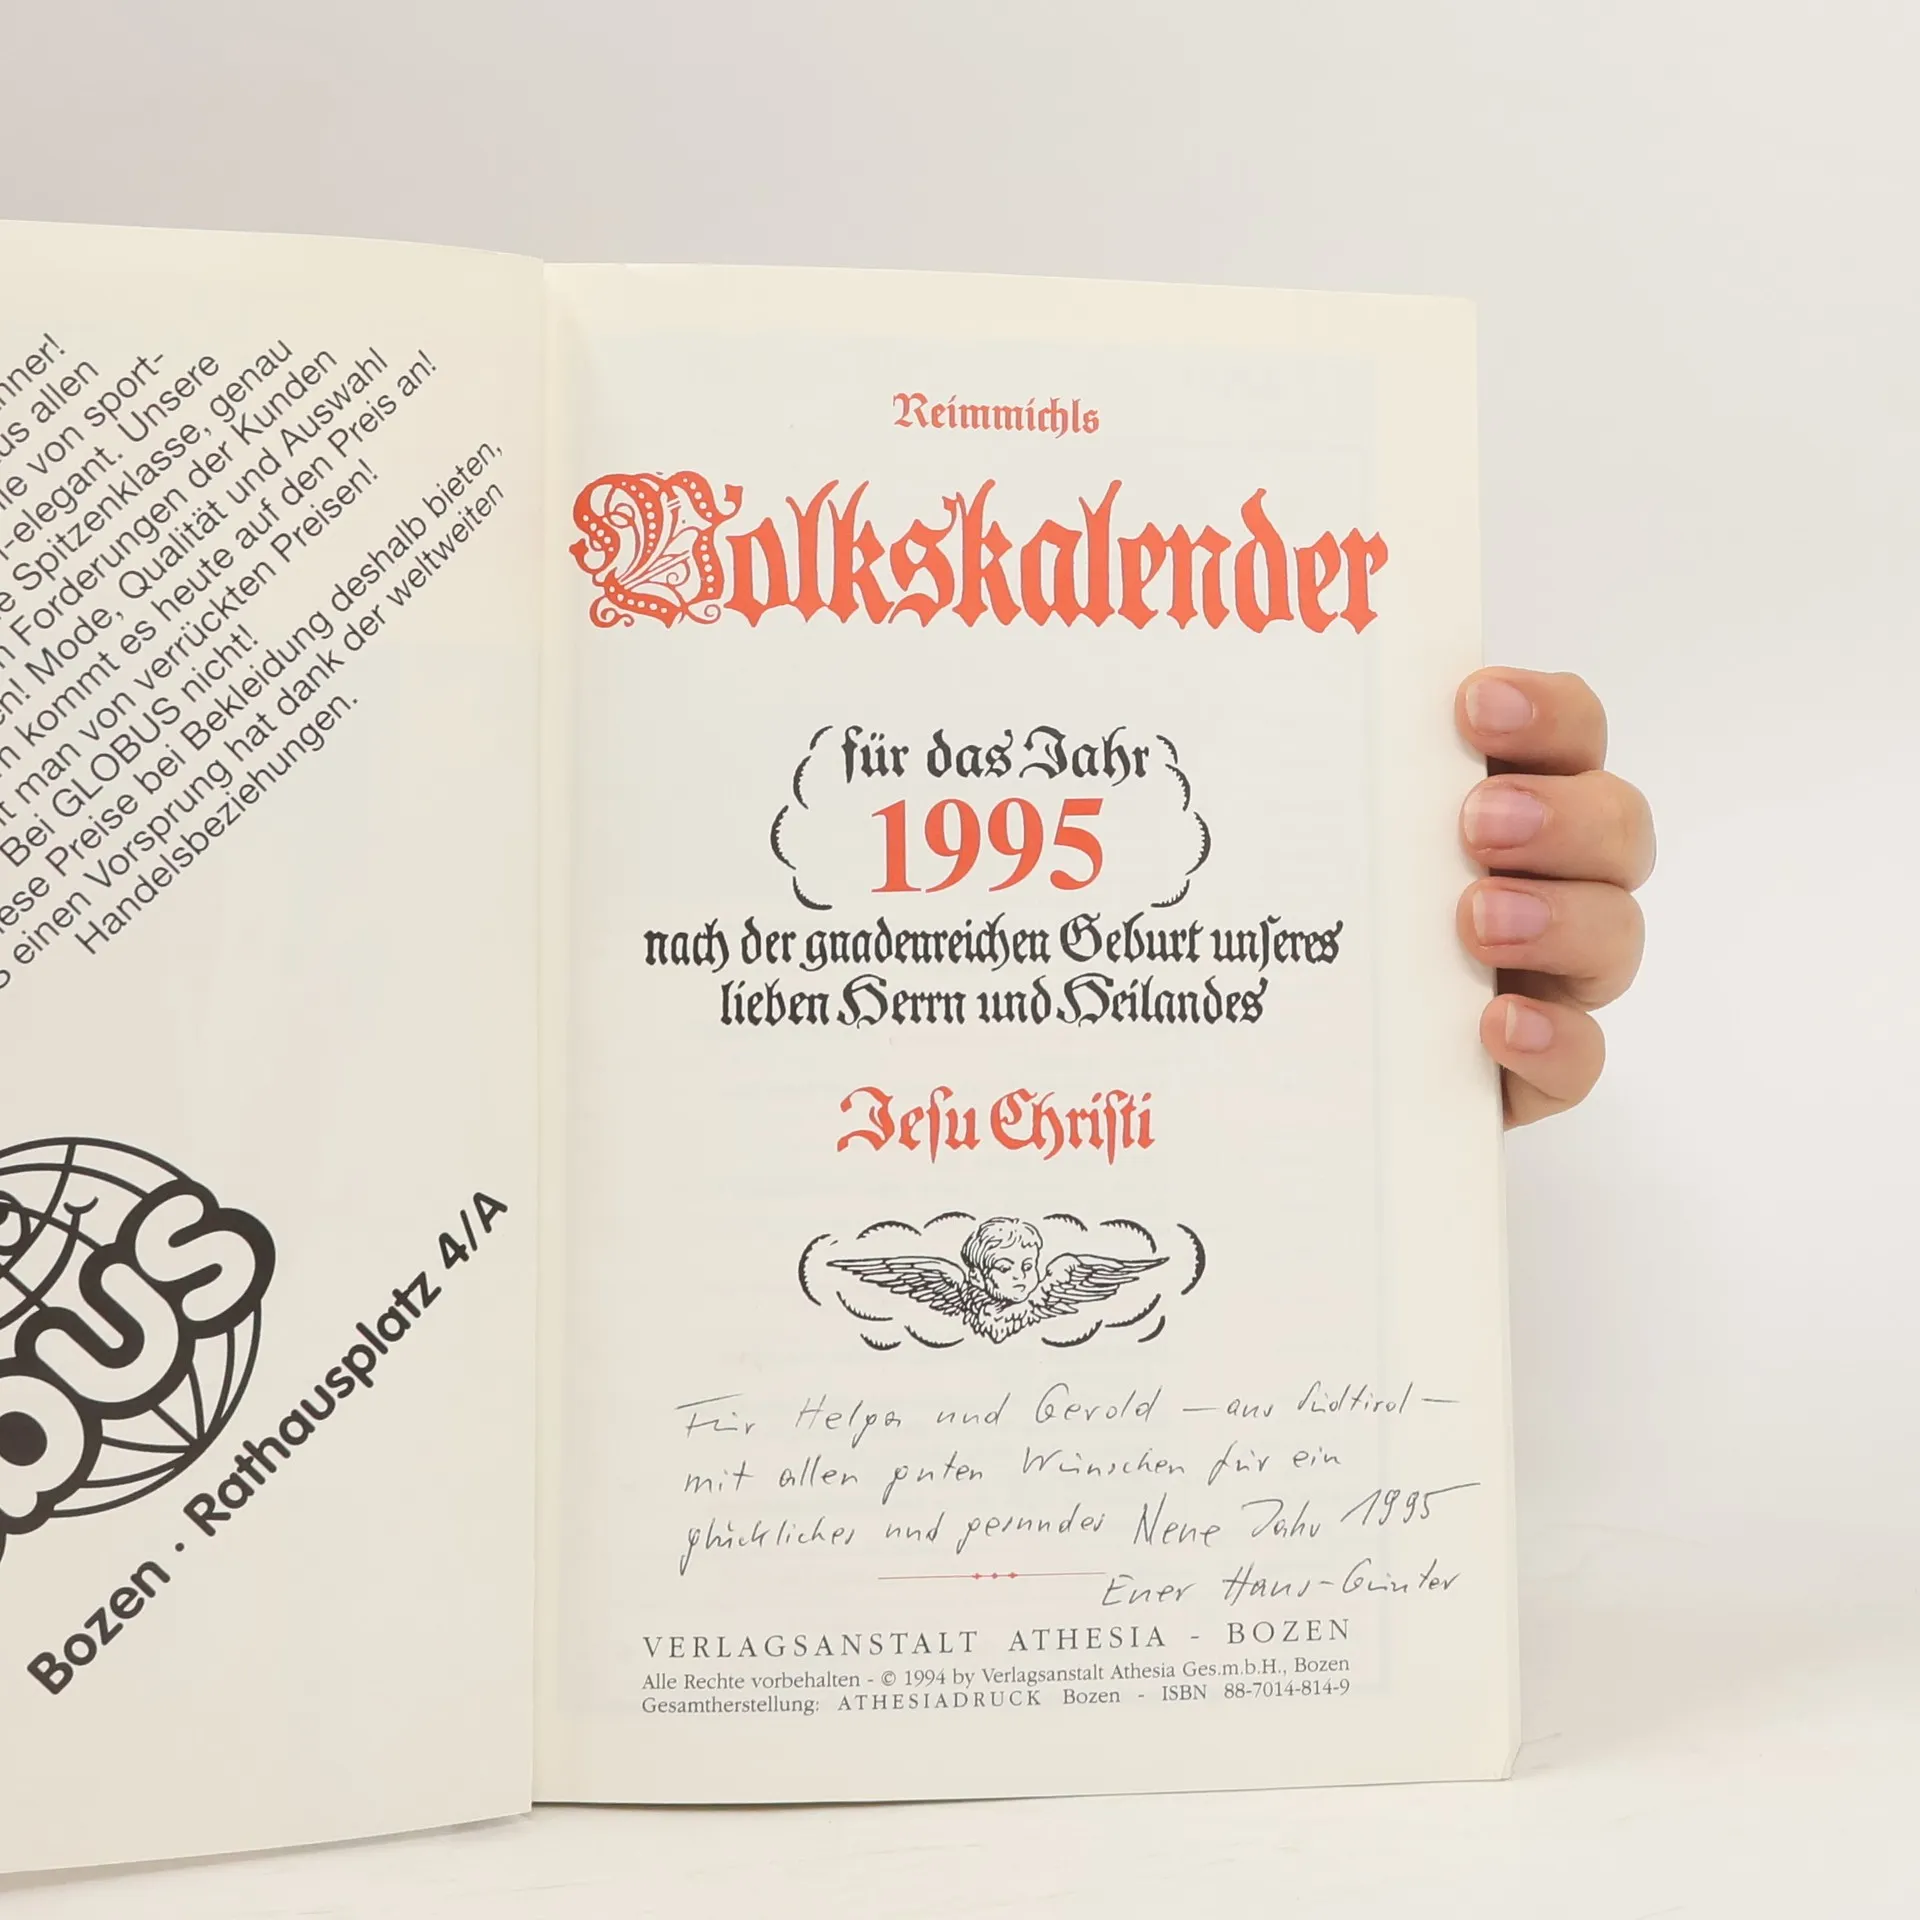 nner!
us allen
le von sport-
-elegant. Unsere
e Spitzenklasse, genau
n Forderungen der Kunden
en! Mode, Qualität und Auswahl
n kommt es heute auf den Preis an!
t man von verrückten Preisen!
Bei GLOBUS nicht!
ese Preise bei Bekleidung deshalb bieten,
S einen Vorsprung hat dank der weltweiten
Handelsbeziehungen.
BUS
Bozen · Rathausplatz 4/A
Reimmichls
Volkskalender
für das Jahr
1995
nach der gnadenreichen Geburt unseres
lieben Herrn und Heilandes
Jesu Christi
Für Helga und Gerold – aus Südtirol –
mit allen guten Wünschen für ein
glückliches und gesundes Neue Jahr 1995
Euer Hans-Günter
VERLAGSANSTALT ATHESIA - BOZEN
Alle Rechte vorbehalten - © 1994 by Verlagsanstalt Athesia Ges.m.b.H., Bozen
Gesamtherstellung: ATHESIADRUCK Bozen - ISBN 88-7014-814-9